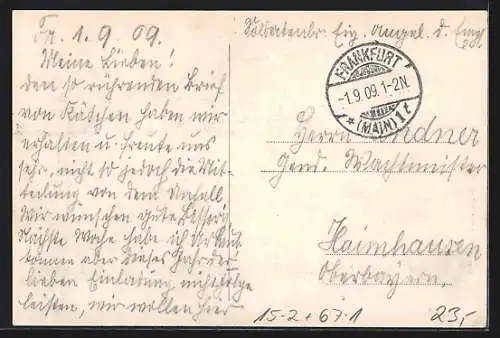 Fr. 1.9.09.
Meine Lieben!
den so rührenden Brief
von Käthchen haben wir
erhalten u. freute uns
sehr, nicht so jedoch die Mit-
teilung von dem Unfall
Wir wünschen gute Besserg.
Nächste Woche habe ich Urlaub
komme aber dieses Jahr der
lieben Einladung nicht folge
leisten, wir wollen hier
Soldatenbr. Eig. Angel. d. Empf.
FRANKFURT
-1.9.09.1-2N.
* (MAIN) 1 t
Herrn Lindner
Gend. Wachtmeister
Haimhausen
Oberbayern.
15-2+67-1
23,-